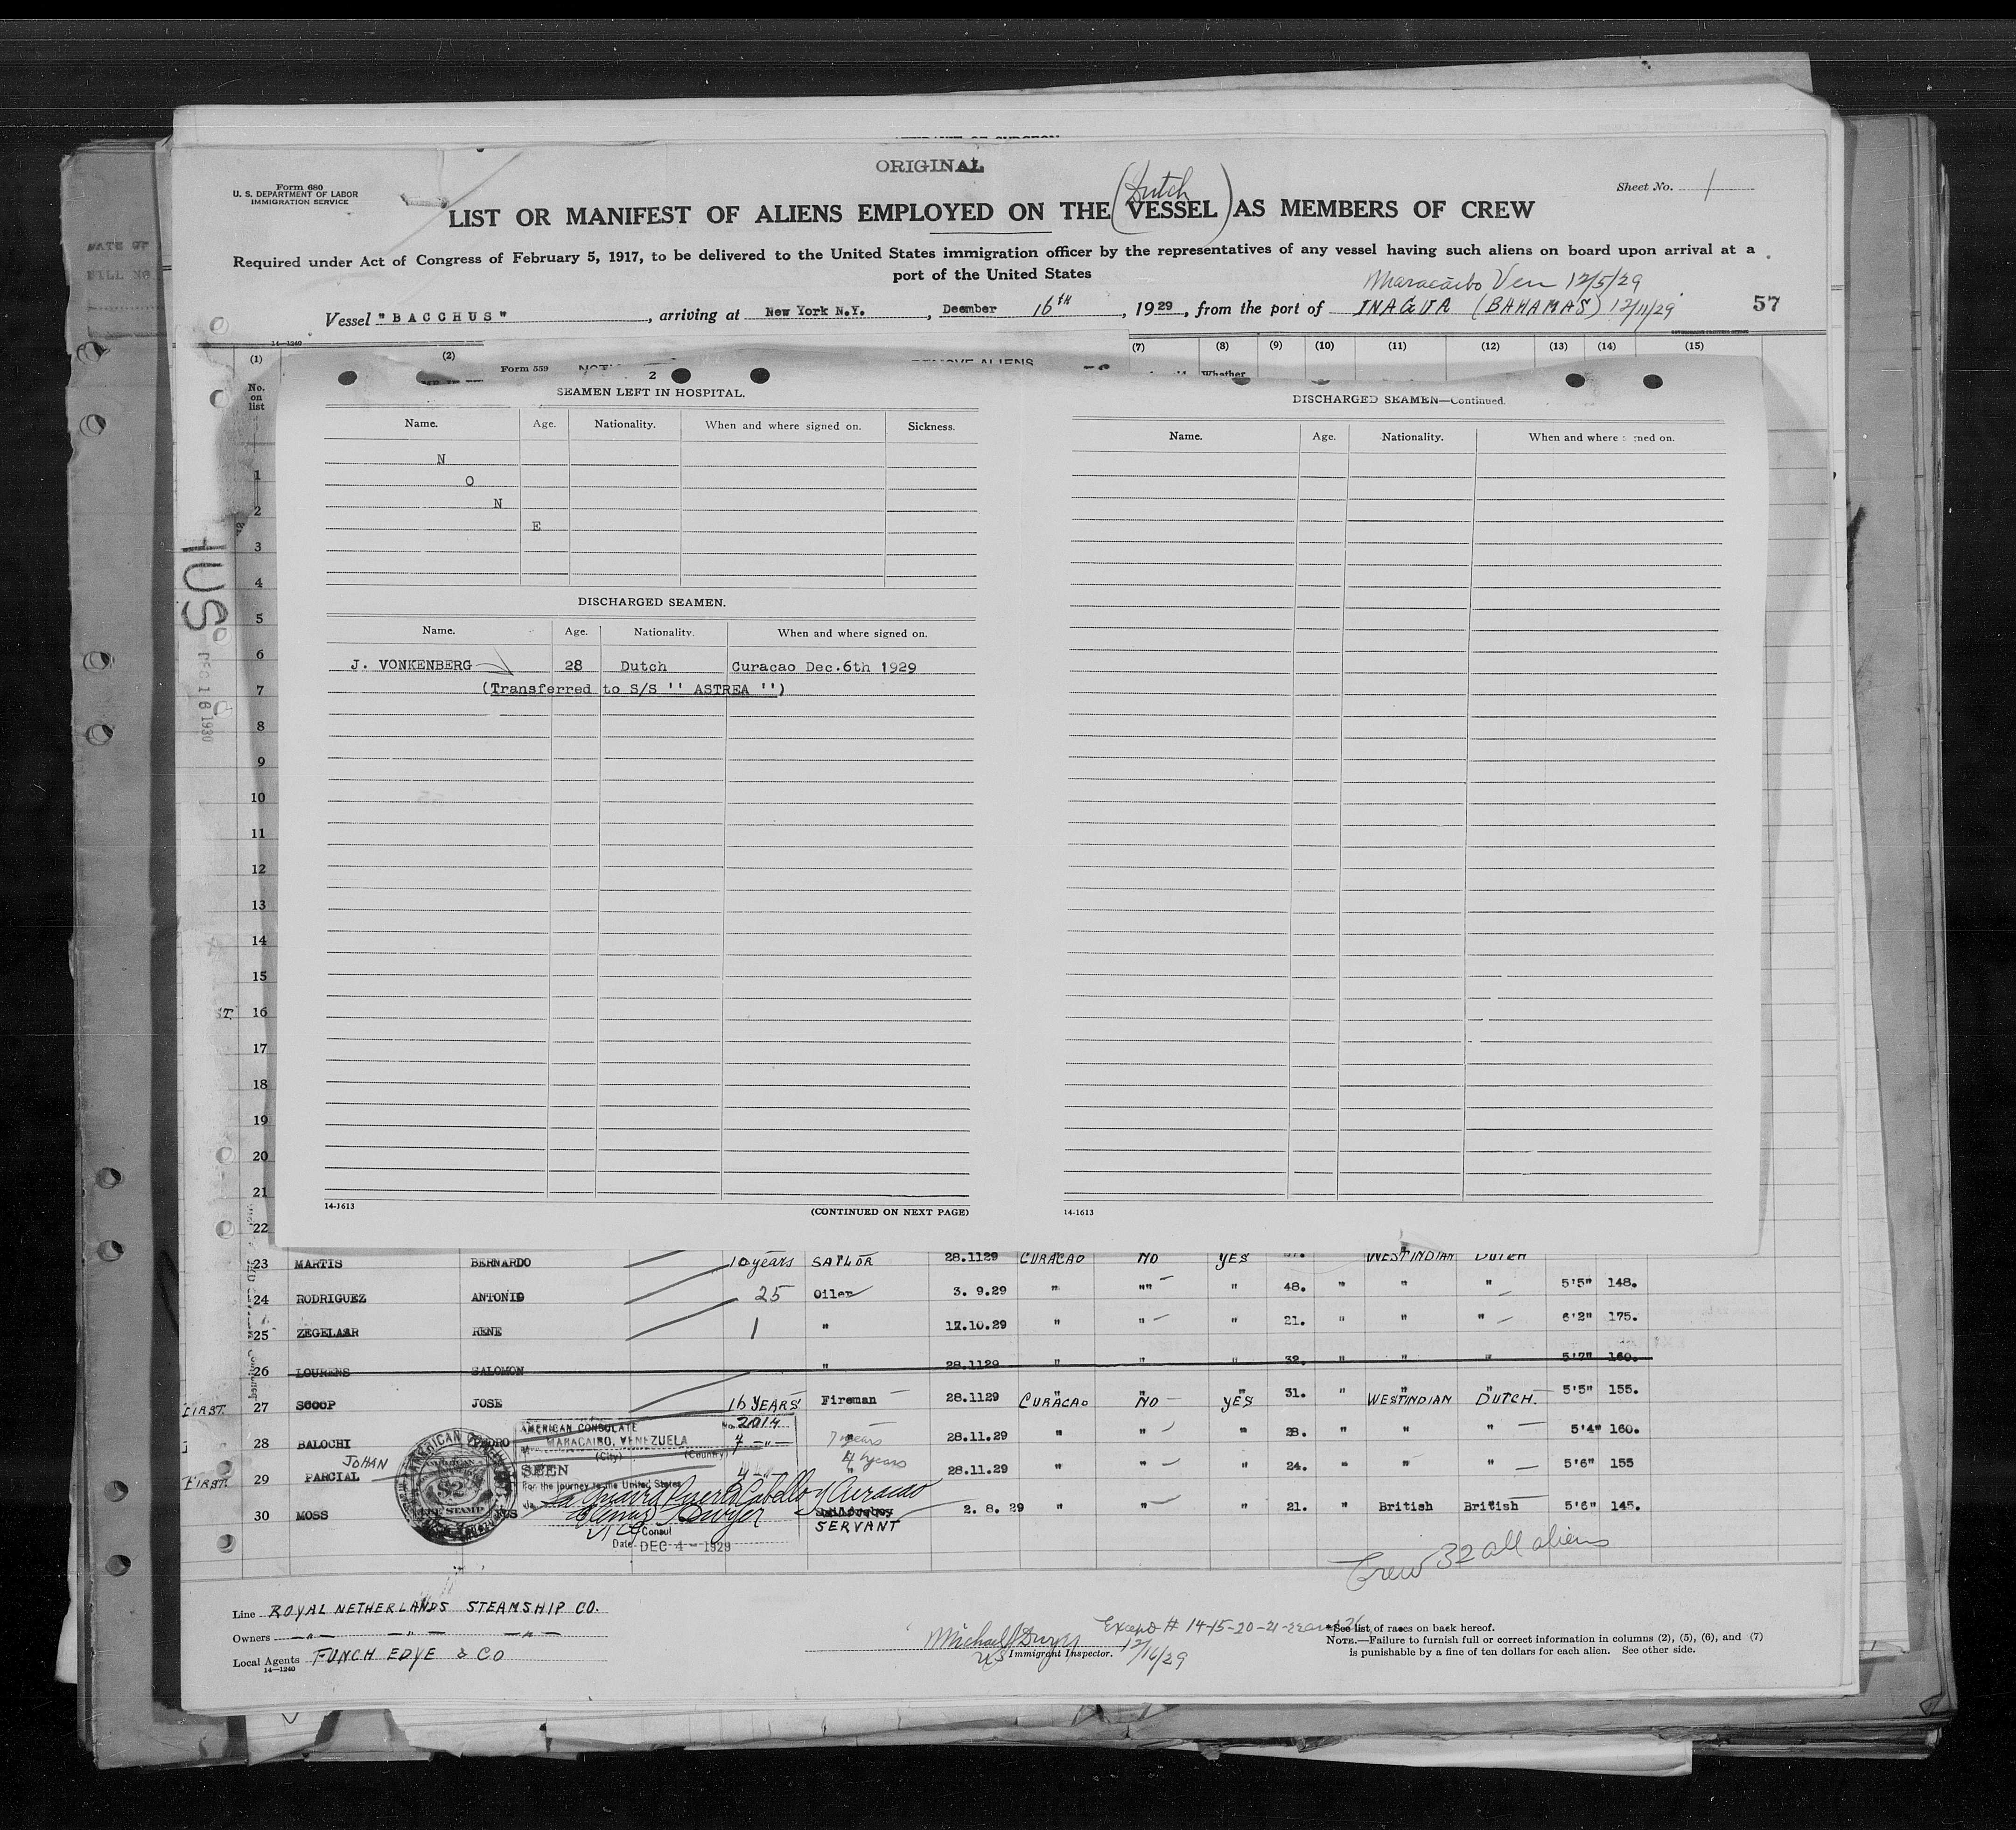 ORIGINAL
Form 680
U. S. DEPARTMENT OF LABOR
IMMIGRATION SERVICE
Sheet No. 1
(Dutch)
LIST OR MANIFEST OF ALIENS EMPLOYED ON THE VESSEL AS MEMBERS OF CREW
Required under Act of Congress of February 5, 1917, to be delivered to the United States immigration officer by the representatives of any vessel having such aliens on board upon arrival at a
port of the United States
Maracaibo Ven 12/5/29
Vessel "BACCHUS", arriving at New York N.Y., Deember 16th, 1929, from the port of INAGUA (BAHAMAS) 12/11/29
57
14-1240
(1) (2) (7) (8) (9) (10) (11) (12) (13) (14) (15)
No. on list
Form 559
Whether
2
SEAMEN LEFT IN HOSPITAL.
Name. Age. Nationality. When and where signed on. Sickness.
N
O
N
E
DISCHARGED SEAMEN.
Name. Age. Nationality. When and where signed on.
J. VONKENBERG 28 Dutch Curacao Dec.6th 1929
(Transferred to S/S '' ASTREA '')
14-1613
(CONTINUED ON NEXT PAGE)
DISCHARGED SEAMEN—Continued.
Name. Age. Nationality. When and where
14-1613
1
2
3
4
5
6
7
8
9
10
11
12
13
14
15
16
17
18
19
20
21
22
23 MARTIS BERNARDO 10 years SAILOR 28.1129 CURACAO NO YES WESTINDIAN DUTCH
24 RODRIGUEZ ANTONIO 25 Oiler 3. 9.29 " "" " 48. " " " 5'5" 148.
25 ZEGELAAR RENE 1 " 12.10.29 " " " 21. " " " 6'2" 175.
26 LOURENS SALOMON " 28.1129 " " " 32. " " " 5'7" 160.
FIRST 27 SCOOP JOSE 16 YEARS Fireman 28.1129 CURACAO NO YES 31. " WESTINDIAN DUTCH 5'5" 155.
28 BALOCHI PEDRO 7 -"- 7 years 28.11.29 " " " 28. " " " 5'4" 160.
JOHAN
FIRST 29 PARCIAL 4 -"- 4 years " 28.11.29 " " " 24. " " " 5'6" 155
30 MOSS 2. 8. 29 " " " 21. " British British 5'6" 145.
SERVANT
AMERICAN CONSULATE
No. 2014
MARACAIBO, VENEZUELA
(City) (Country)
SEEN
For the journey to the United States
La Guaira Puerto Cabello y Curacao
Vice Consul
Date DEC 4 - 1929
Crew 32 all aliens
Line ROYAL NETHERLANDS STEAMSHIP CO.
Owners -"- -"- -"-
Local Agents FUNCH EDYE & CO
14-1240
Michael J Dwyer
US Immigrant Inspector. 12/16/29
Except # 14-15-20-21-
See list of races on back hereof.
NOTE.—Failure to furnish full or correct information in columns (2), (5), (6), and (7)
is punishable by a fine of ten dollars for each alien. See other side.